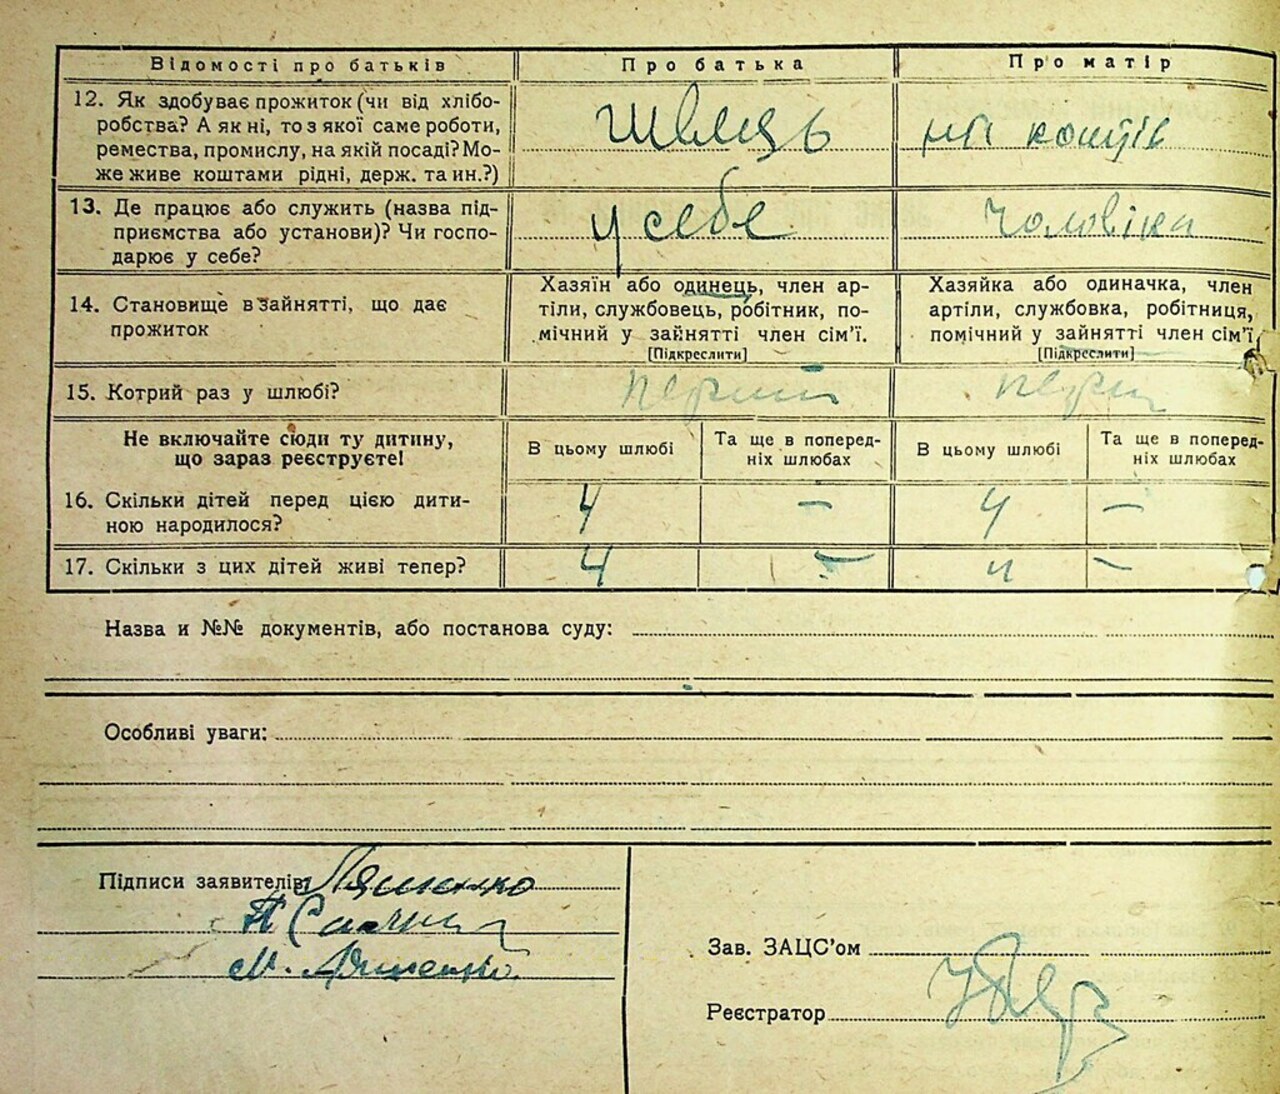 Відомості про батьків Про батька Про матір
12. Як здобуває прожиток (чи від хлібо-
робства? А як ні, то з якої саме роботи,
ремества, промислу, на якій посаді? Мо-
же живе коштами рідні, держ. та ин.?)
Швець
на коштів
13. Де працює або служить (назва під-
приємства або установи)? Чи госпо-
дарює у себе?
у себе
Чоловіка
14. Становище в зайнятті, що дає
прожиток
Хазяїн або одинець, член ар-
тіли, службовець, робітник, по-
мічний у зайнятті член сім'ї.
[Підкреслити]
Хазяйка або одиначка, член
артіли, службовка, робітниця,
помічний у зайнятті член сім'ї
[Підкреслити]
15. Котрий раз у шлюбі?
Не включайте сюди ту дитину,
що зараз реєструєте!
В цьому шлюбі
Та ще в поперед-
ніх шлюбах
В цьому шлюбі
Та ще в поперед-
ніх шлюбах
16. Скільки дітей перед цією дити-
ною народилося?
4 — 4 —
17. Скільки з цих дітей живі тепер?
4 — 4 —
Назва и №№ документів, або постанова суду:
Особливі уваги:
Підписи заявителів: Ляшенко
М. Ляшенко
Зав. ЗАЦС'ом
Реєстратор